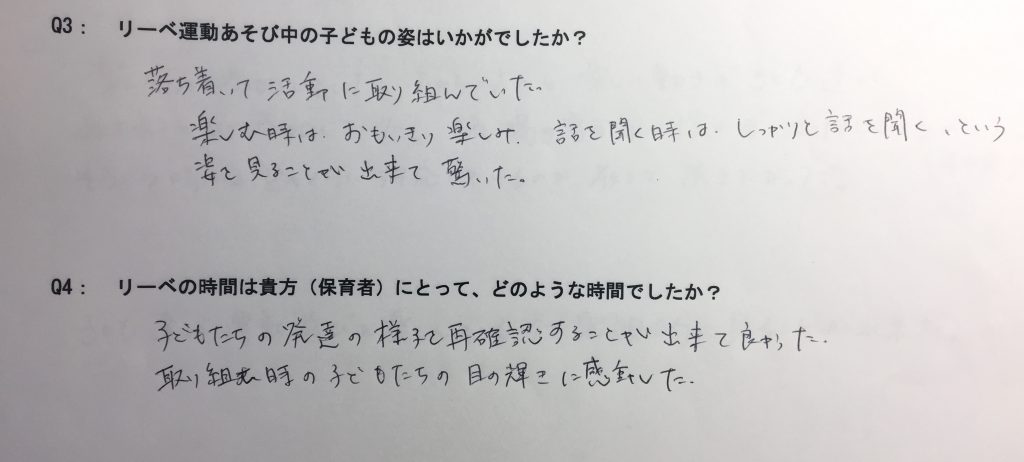 Q3： リーベ運動あそび中の子どもの姿はいかがでしたか？
落ち着いて活動に取り組んでいた。
楽しむ時は、おもいきり楽しみ、話を聞く時は、しっかりと話を聞く、という
姿を見ることが出来て驚いた。
Q4： リーベの時間は貴方（保育者）にとって、どのような時間でしたか？
子どもたちの発達の様子を再確認することが出来て良かった。
取り組む時の子どもたちの目の輝きに感動した。